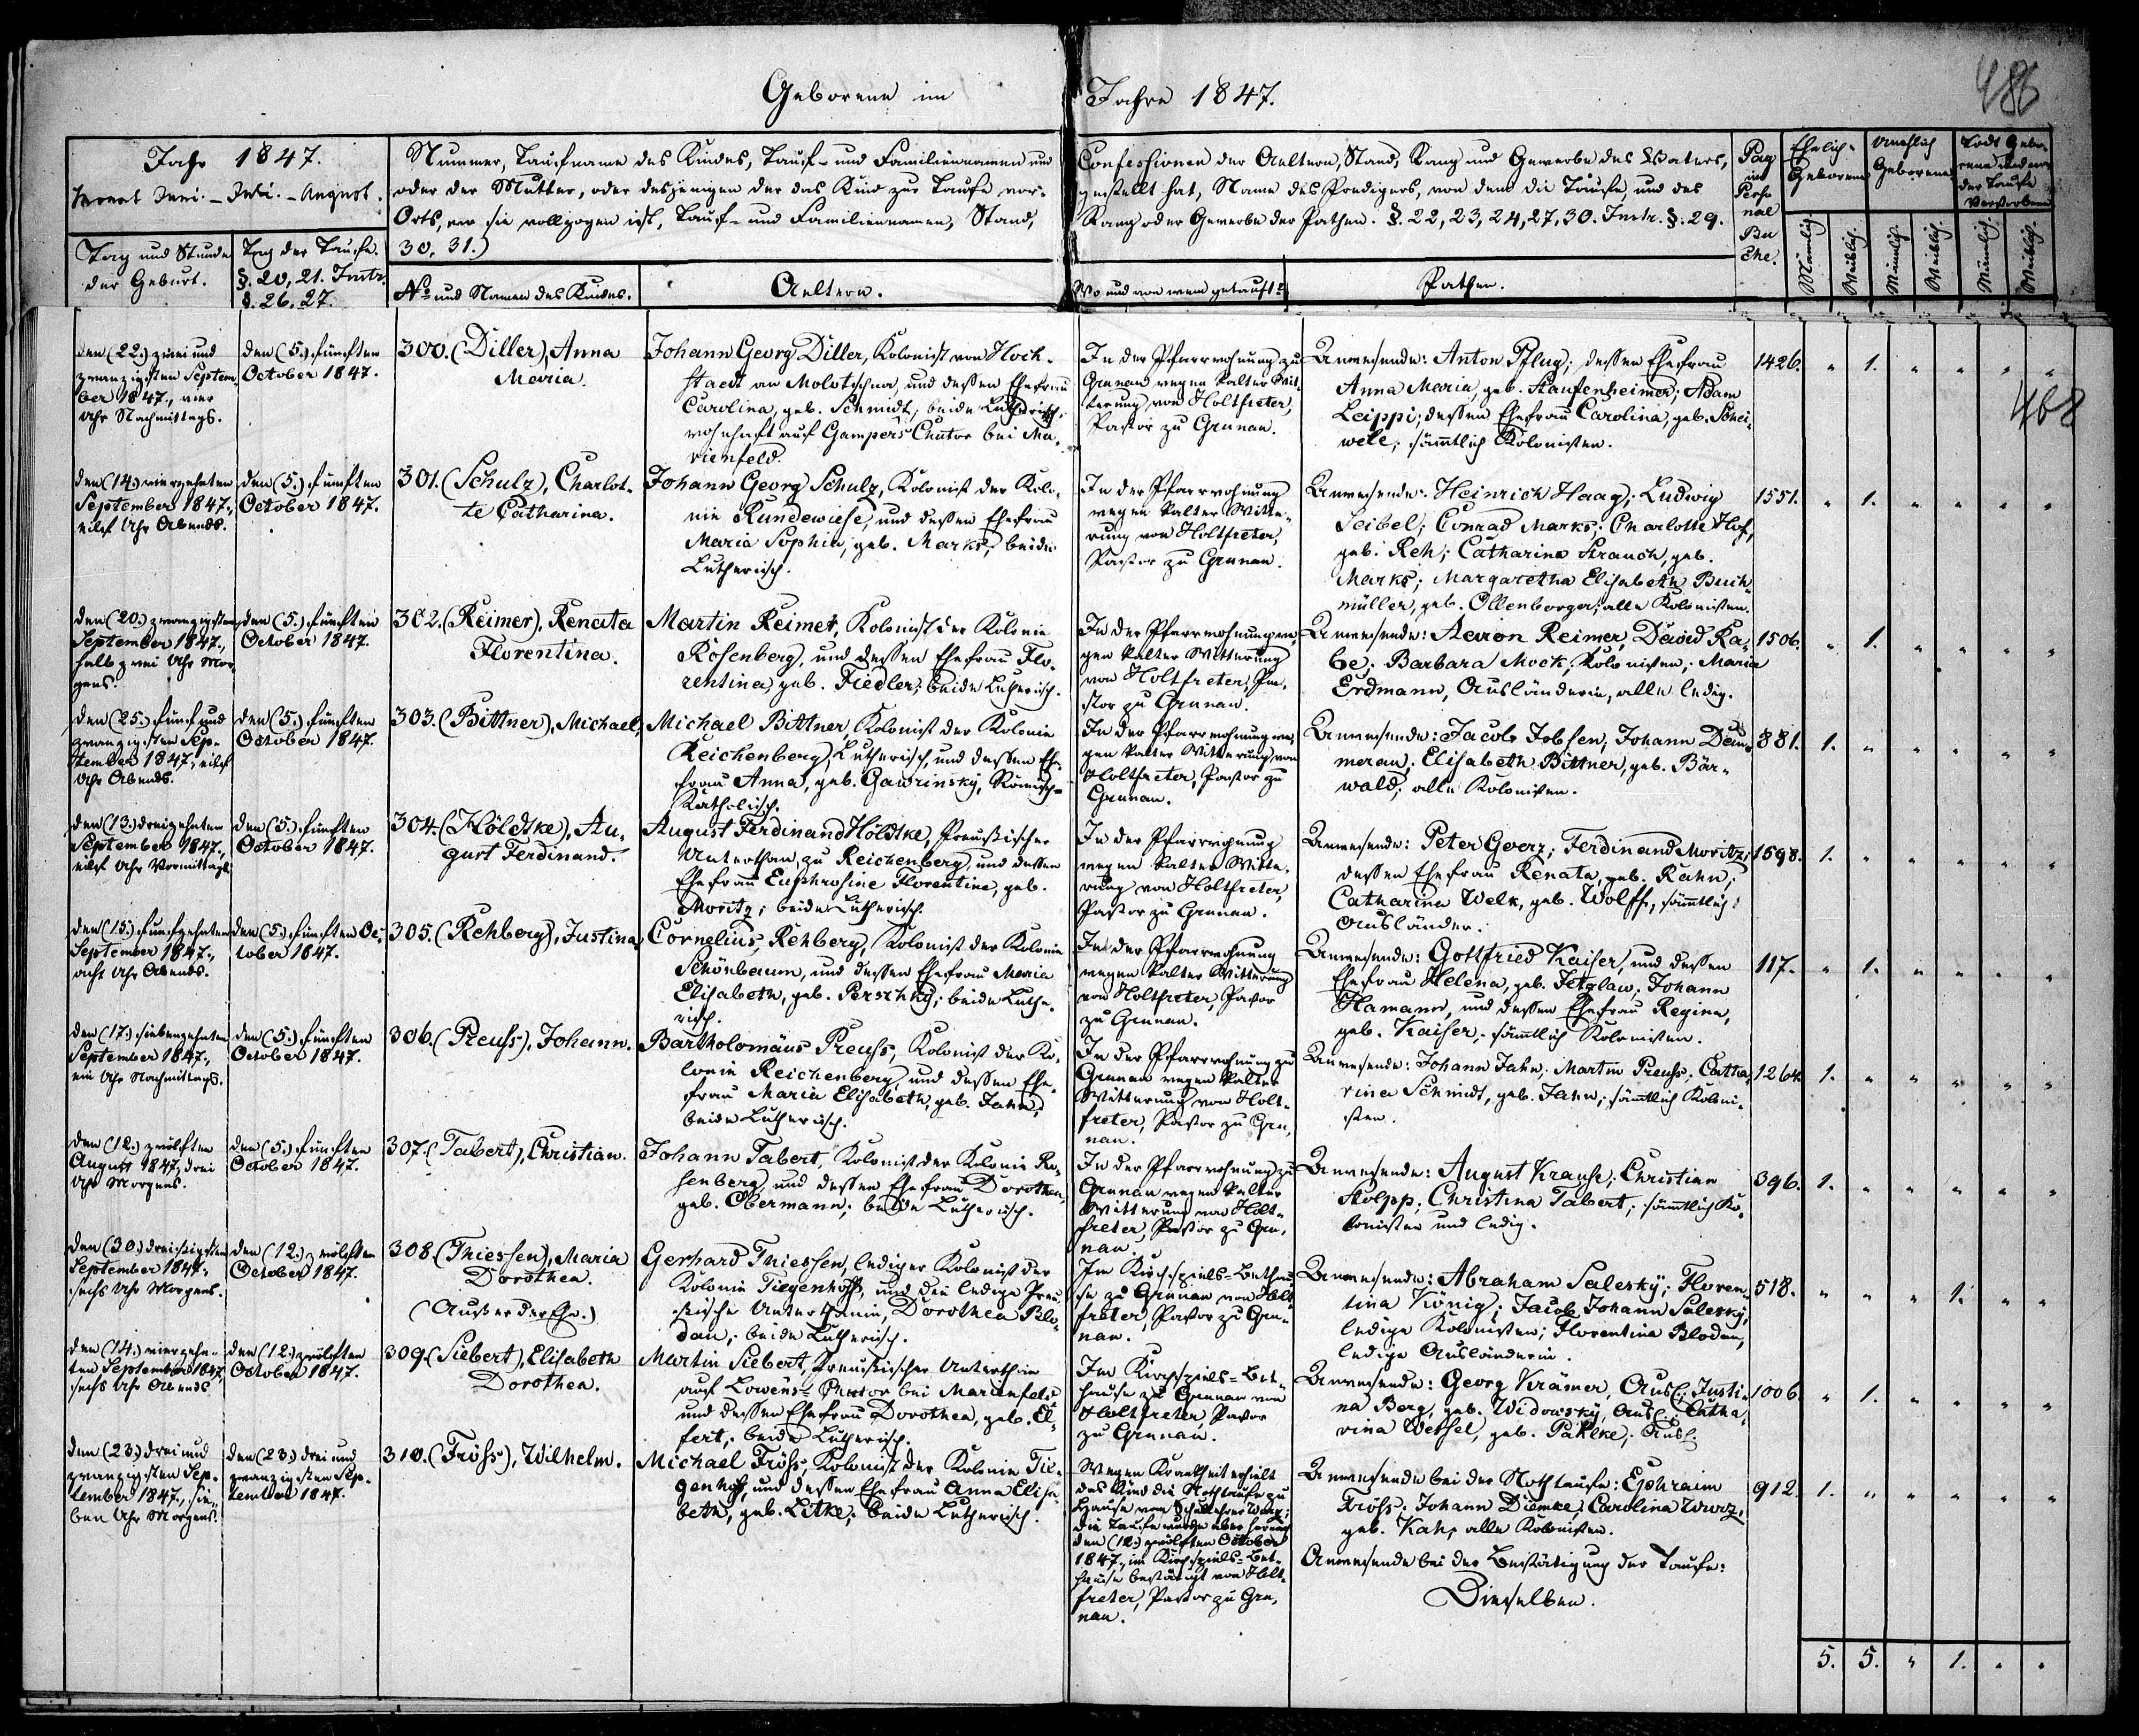 Geborene im Jahre 1847.
486
Jahr 1847.
Monat Juni. – Juli. – August.
Tag und Stunde
der Geburt.
Tag der Taufe.
§. 20, 21. Instr.
§. 26. 27.
Nummer, Taufname des Kindes, Tauf- und Familiennamen und
oder der Mutter, oder desjenigen der das Kind zur Taufe vor-
Orts, wo sie vollzogen ist, Tauf- und Familiennamen, Stand,
30, 31.)
No und Namen des Kindes.
Aeltern.
Confessionen der Aeltern, Stand, Rang und Gewerbe des Vaters,
gestellt hat, Name des Predigers, von dem die Taufe, und des
Rang oder Gewerbe der Pathen. §. 22, 23, 24, 27, 30. Instr. §. 29.
Wo und von wem getauft?
Pathen.
Pag
im
Perso
nal
Bu
che.
Ehelich-
Geborene
Unehlich
Geborene
Todt Gebo-
rene und vor
der Taufe
Verstorbene
Männlich.
Weiblich.
Männlich.
Weiblich.
Männlich.
Weiblich.
den (22.) zwei und
zwanzigsten Septem-
ber 1847., vier
Uhr Nachmittags.
den (5.) fünften
October 1847.
300. (Diller), Anna
Maria.
Johann Georg Diller, Kolonist von Hoch-
staedt an Molotschna, und dessen Ehefrau
Carolina, geb. Schmidt, beide Lutherisch,
wohnhaft auf Gampers Chutor bei Ma-
rienfeld.
In der Pfarrwohnung zu
Grunau wegen kalter Wit-
terung von Holtfreter,
Pastor zu Grunau.
Anwesende: Anton Pflug; dessen Ehefrau
Anna Maria, geb. Staufenheimer; Adam
Leippi; dessen Ehefrau Carolina, geb. Schei-
wele; sämmtlich Kolonisten.
1426. " 1. " " " "
468
den (14.) vierzehnten
September 1847.,
eilf Uhr Abends.
den (5.) fünften
October 1847.
301. (Schulz), Charlot-
te Catharina.
Johann Georg Schulz, Kolonist der Kolo-
nie Rundewiese, und dessen Ehefrau
Maria Sophia, geb. Marks; beide
Lutherisch.
In der Pfarrwohnung
wegen kalter Witte-
rung von Holtfreter,
Pastor zu Grunau.
Anwesende: Heinrich Haag; Ludwig
Seibel; Conrad Marks; Charlotte Hof,
geb. Reh; Catharina Strauch, geb.
Marks; Margaretha Elisabeth Buch-
müller, geb. Ollenborger; alle Kolonisten.
1551. " 1. " " " "
den (20.) zwanzigsten
September 1847.,
halb zwei Uhr Mor-
gens.
den (5.) fünften
October 1847.
302. (Reimer), Renata
Florentina.
Martin Reimer, Kolonist der Kolonie
Rosenberg, und dessen Ehefrau Flo-
rentina, geb. Fiedler; beide Lutherisch.
In der Pfarrwohnung we-
gen kalter Witterung
von Holtfreter, Pa-
stor zu Grunau.
Anwesende: Aaron Reimer, David Ka-
be; Barbara Mock, Kolonisten; Maria
Erdmann, Ausländerin, alle ledig.
1506. " 1. " " " "
den (25.) fünf und
zwanzigsten Sep-
tember 1847., eilf
Uhr Abends.
den (5.) fünften
October 1847.
303. (Bittner), Michael.
Michael Bittner, Kolonist der Kolonie
Reichenberg, Lutherisch, und dessen Ehe-
frau Anna, geb. Gawrinsky, Römisch-
Katholisch.
In der Pfarrwohnung we-
gen kalter Witterung von
Holtfreter, Pastor zu
Grunau.
Anwesende: Jacob Jobsen; Johann Dam-
merau; Elisabeth Bittner, geb. Bär-
wald; alle Kolonisten.
881. 1. " " " " "
den (13.) dreizehnten
September 1847.,
eilf Uhr Vormittags.
den (5.) fünften
October 1847.
304. (Höldtke), Au-
gust Ferdinand.
August Ferdinand Höldtke, Preußischer
Unterthan, zu Reichenberg, und dessen
Ehefrau Euphrosine Florentine, geb.
Moritz; beide Lutherisch.
In der Pfarrwohnung
wegen kalter Witte-
rung von Holtfreter,
Pastor zu Grunau.
Anwesende: Peter Goerz; Ferdinand Moritz;
dessen Ehefrau Renata, geb. Rahn;
Catharina Welk, geb. Wolff, sämmtlich
Ausländer.
1598. 1. " " " " "
den (15.) fünfzehnten
September 1847.,
acht Uhr Abends.
den (5.) fünften Oc-
tober 1847.
305. (Rehberg), Justina
Cornelius Rehberg, Kolonist der Kolonie
Schönbaum, und dessen Ehefrau Maria
Elisabeth, geb. Perschky; beide Luthe-
risch.
In der Pfarrwohnung
wegen kalter Witterung
von Holtfreter, Pastor
zu Grunau.
Anwesende: Gottfried Kaiser, und dessen
Ehefrau Helena, geb. Jetzlaw; Johann
Hamann, und dessen Ehefrau Regina,
geb. Kaiser; sämmtlich Kolonisten.
117. " 1. " " " "
den (17.) siebenzehnten
September 1847.,
ein Uhr Nachmittags.
den (5.) fünften
October 1847.
306. (Preuss), Johann.
Bartholomäus Preuss, Kolonist der Ko-
lonie Reichenberg, und dessen Ehe-
frau Maria Elisabeth, geb. Jahn;
beide Lutherisch.
In der Pfarrwohnung zu
Grunau wegen kalter
Witterung von Holt-
freter, Pastor zu Gru-
nau.
Anwesende: Johann Jahn; Martin Preuss; Catha-
rina Schmidt, geb. Jahn; sämmtlich Koloni-
sten.
1264. 1. " " " " "
den (12.) zwölften
August 1847., drei
Uhr Morgens.
den (5.) fünften
October 1847.
307. (Tabert), Christian.
Johann Tabert, Kolonist der Kolonie Ro-
senberg, und dessen Ehefrau Dorothea,
geb. Obermann; beide Lutherisch.
In der Pfarrwohnung zu
Grunau wegen kalter
Witterung von Holt-
freter, Pastor zu Gru-
nau.
Anwesende: August Krause; Christian
Stolpp; Christina Tabert; sämmtlich Ko-
lonisten und ledig.
396. 1. " " " " "
den (30.) dreißigsten
September 1847.,
sechs Uhr Morgens.
den (12.) zwölften
October 1847.
308. (Thiessen), Maria
Dorothea.
(Außer der Ehe.)
Gerhard Thiessen, lediger Kolonist der
Kolonie Tiegenhoff, und die ledige Preu-
ßische Unterthanin, Dorothea Blo-
dau; beide Lutherisch.
Im Kirchspiels-Bethau-
se zu Grunau von Holt-
freter, Pastor zu Gru-
nau.
Anwesende: Abraham Salesky; Floren-
tina König; Jacob Johann Salesky,
ledige Kolonisten; Florentina Blodau,
ledige Ausländerin.
518. " " " 1. " "
den (14.) vierzehn-
ten September 1847,
sechs Uhr Abends
den (12.) zwölften
October 1847.
309. (Siebert), Elisabeth
Dorothea.
Martin Siebert, Preußischer Unterthan
auf Lowens-Chutor bei Marienfeld
und dessen Ehefrau Dorothea, geb. El-
fert; beide Lutherisch.
Im Kirchspiels-Bet-
hause zu Grunau von
Holtfreter, Pastor
zu Grunau.
Anwesende: Georg Krämer, Ausl.; Justi-
na Berg, geb. Widowsky, Ausl.; Catha-
rina Wessel, geb. Pahlke; Ausl.
1006. " 1. " " " "
den (23.) drei und
zwanzigsten Sep-
tember 1847., sie-
ben Uhr Morgens.
den (23.) drei und
zwanzigsten Sep-
tember 1847.
310. (Fröss), Wilhelm.
Michael Fröss, Kolonist der Kolonie Tie-
genhof, und dessen Ehefrau Anna Elisa-
beth, geb. Litke; beide Lutherisch.
Wegen Krankheit erhielt
das Kind die Nothtaufe zu
Hause von Schullehrer
die Taufe wurde aber hernach
den (12.) zwölften October
1847., im Kirchspiels-Bet-
hause bestätigt von Holt-
freter, Pastor zu Gru-
nau.
Anwesende bei der Nothtaufe: Ephraim
Fröss; Johann Diemke; Carolina Wurz,
geb. Kah; alle Kolonisten.
Anwesende bei der Bestätigung der Taufe:
Dieselben.
912. 1. " " " " "
5. 5. " 1. " "